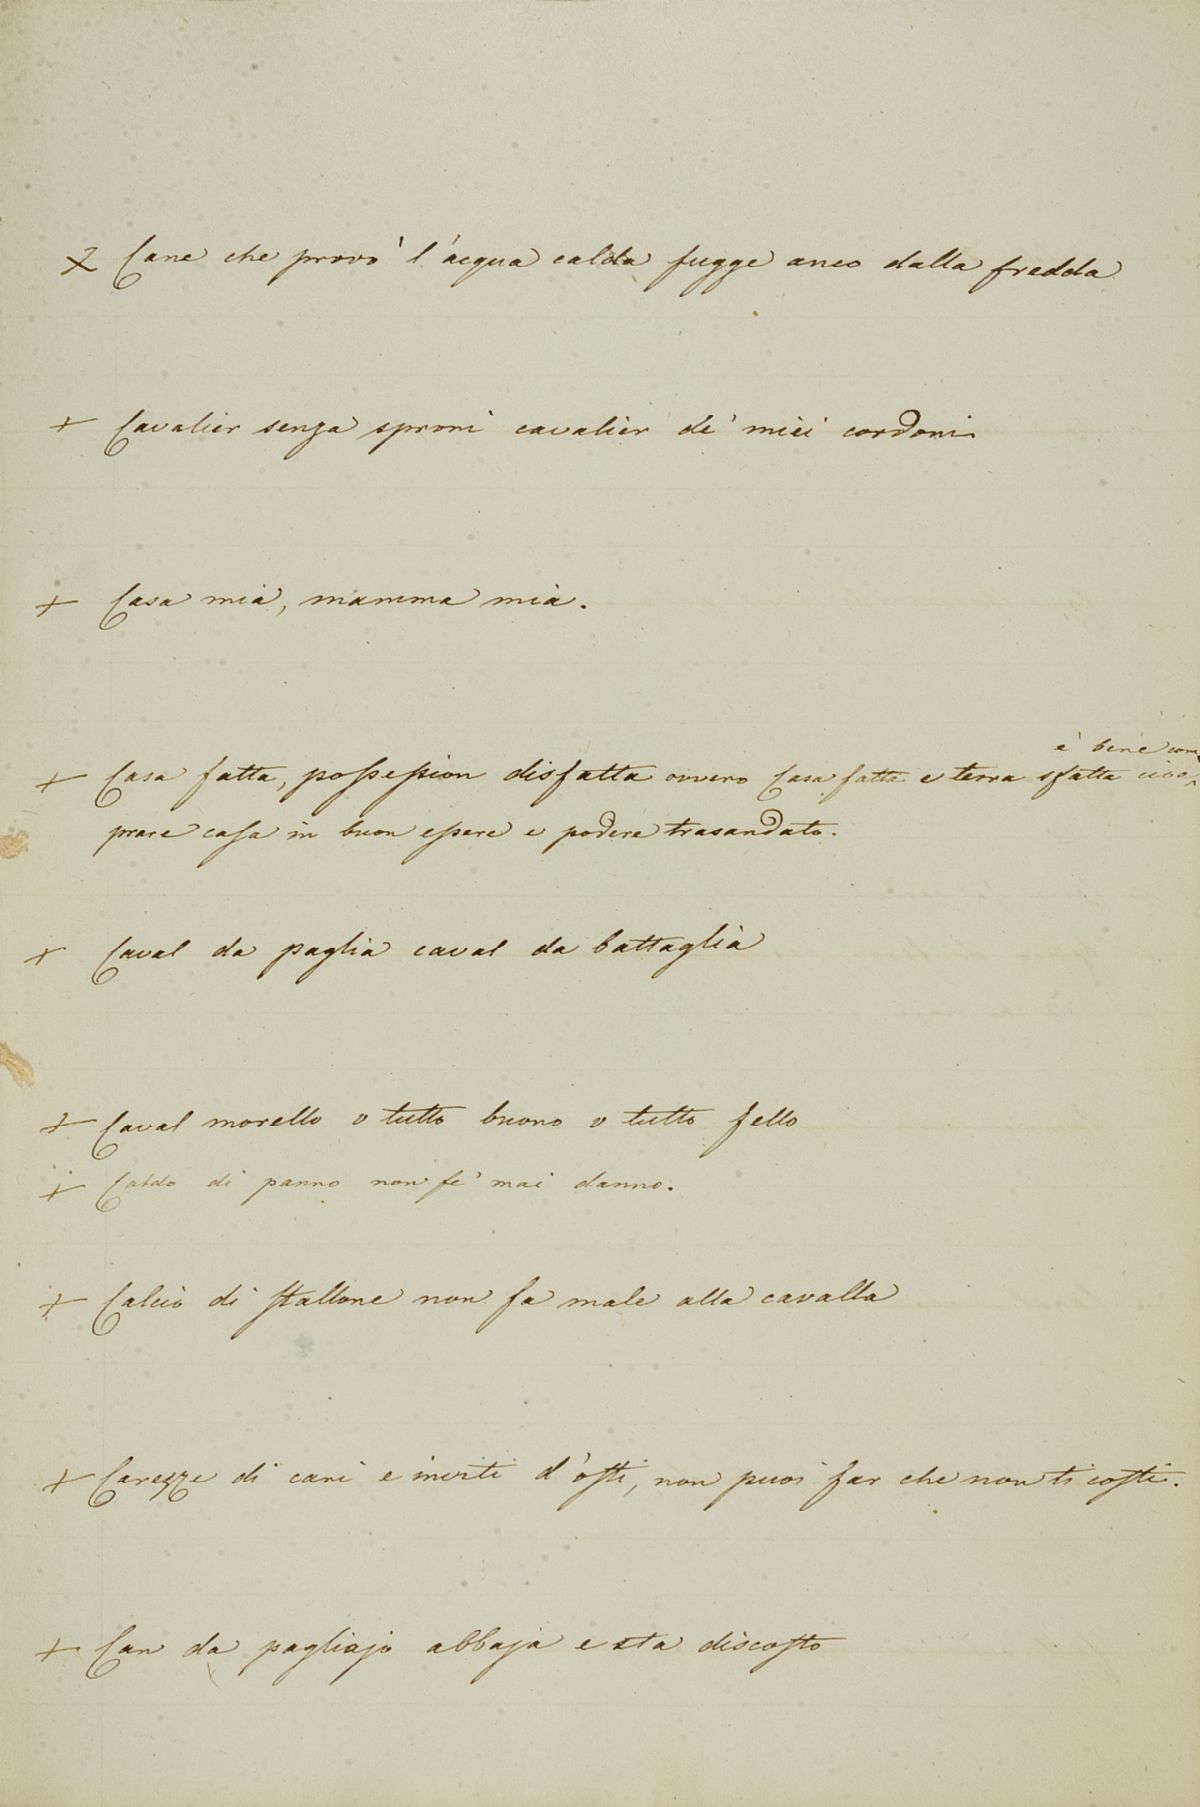 + Cane che provò l'acqua calda fugge anco dalla fredda
+ Cavalier senza sproni cavalier de' miei cordoni
+ Casa mia, mamma mia.
è bene com
+ Casa fatta, possession disfatta ovvero Casa fatta e terra sfatta cioè
prare casa in buon essere e podere trasandato.
+ Caval da paglia caval da battaglia
+ Caval morello o tutto buono o tutto fello
+ Caldo di panno non fe' mai danno.
+ Calcio di stallone non fa male alla cavalla
+ Carezze di cani e inviti d'osti, non puoi far che non ti costi.
+ Can da pagliajo abbaja e sta discosto